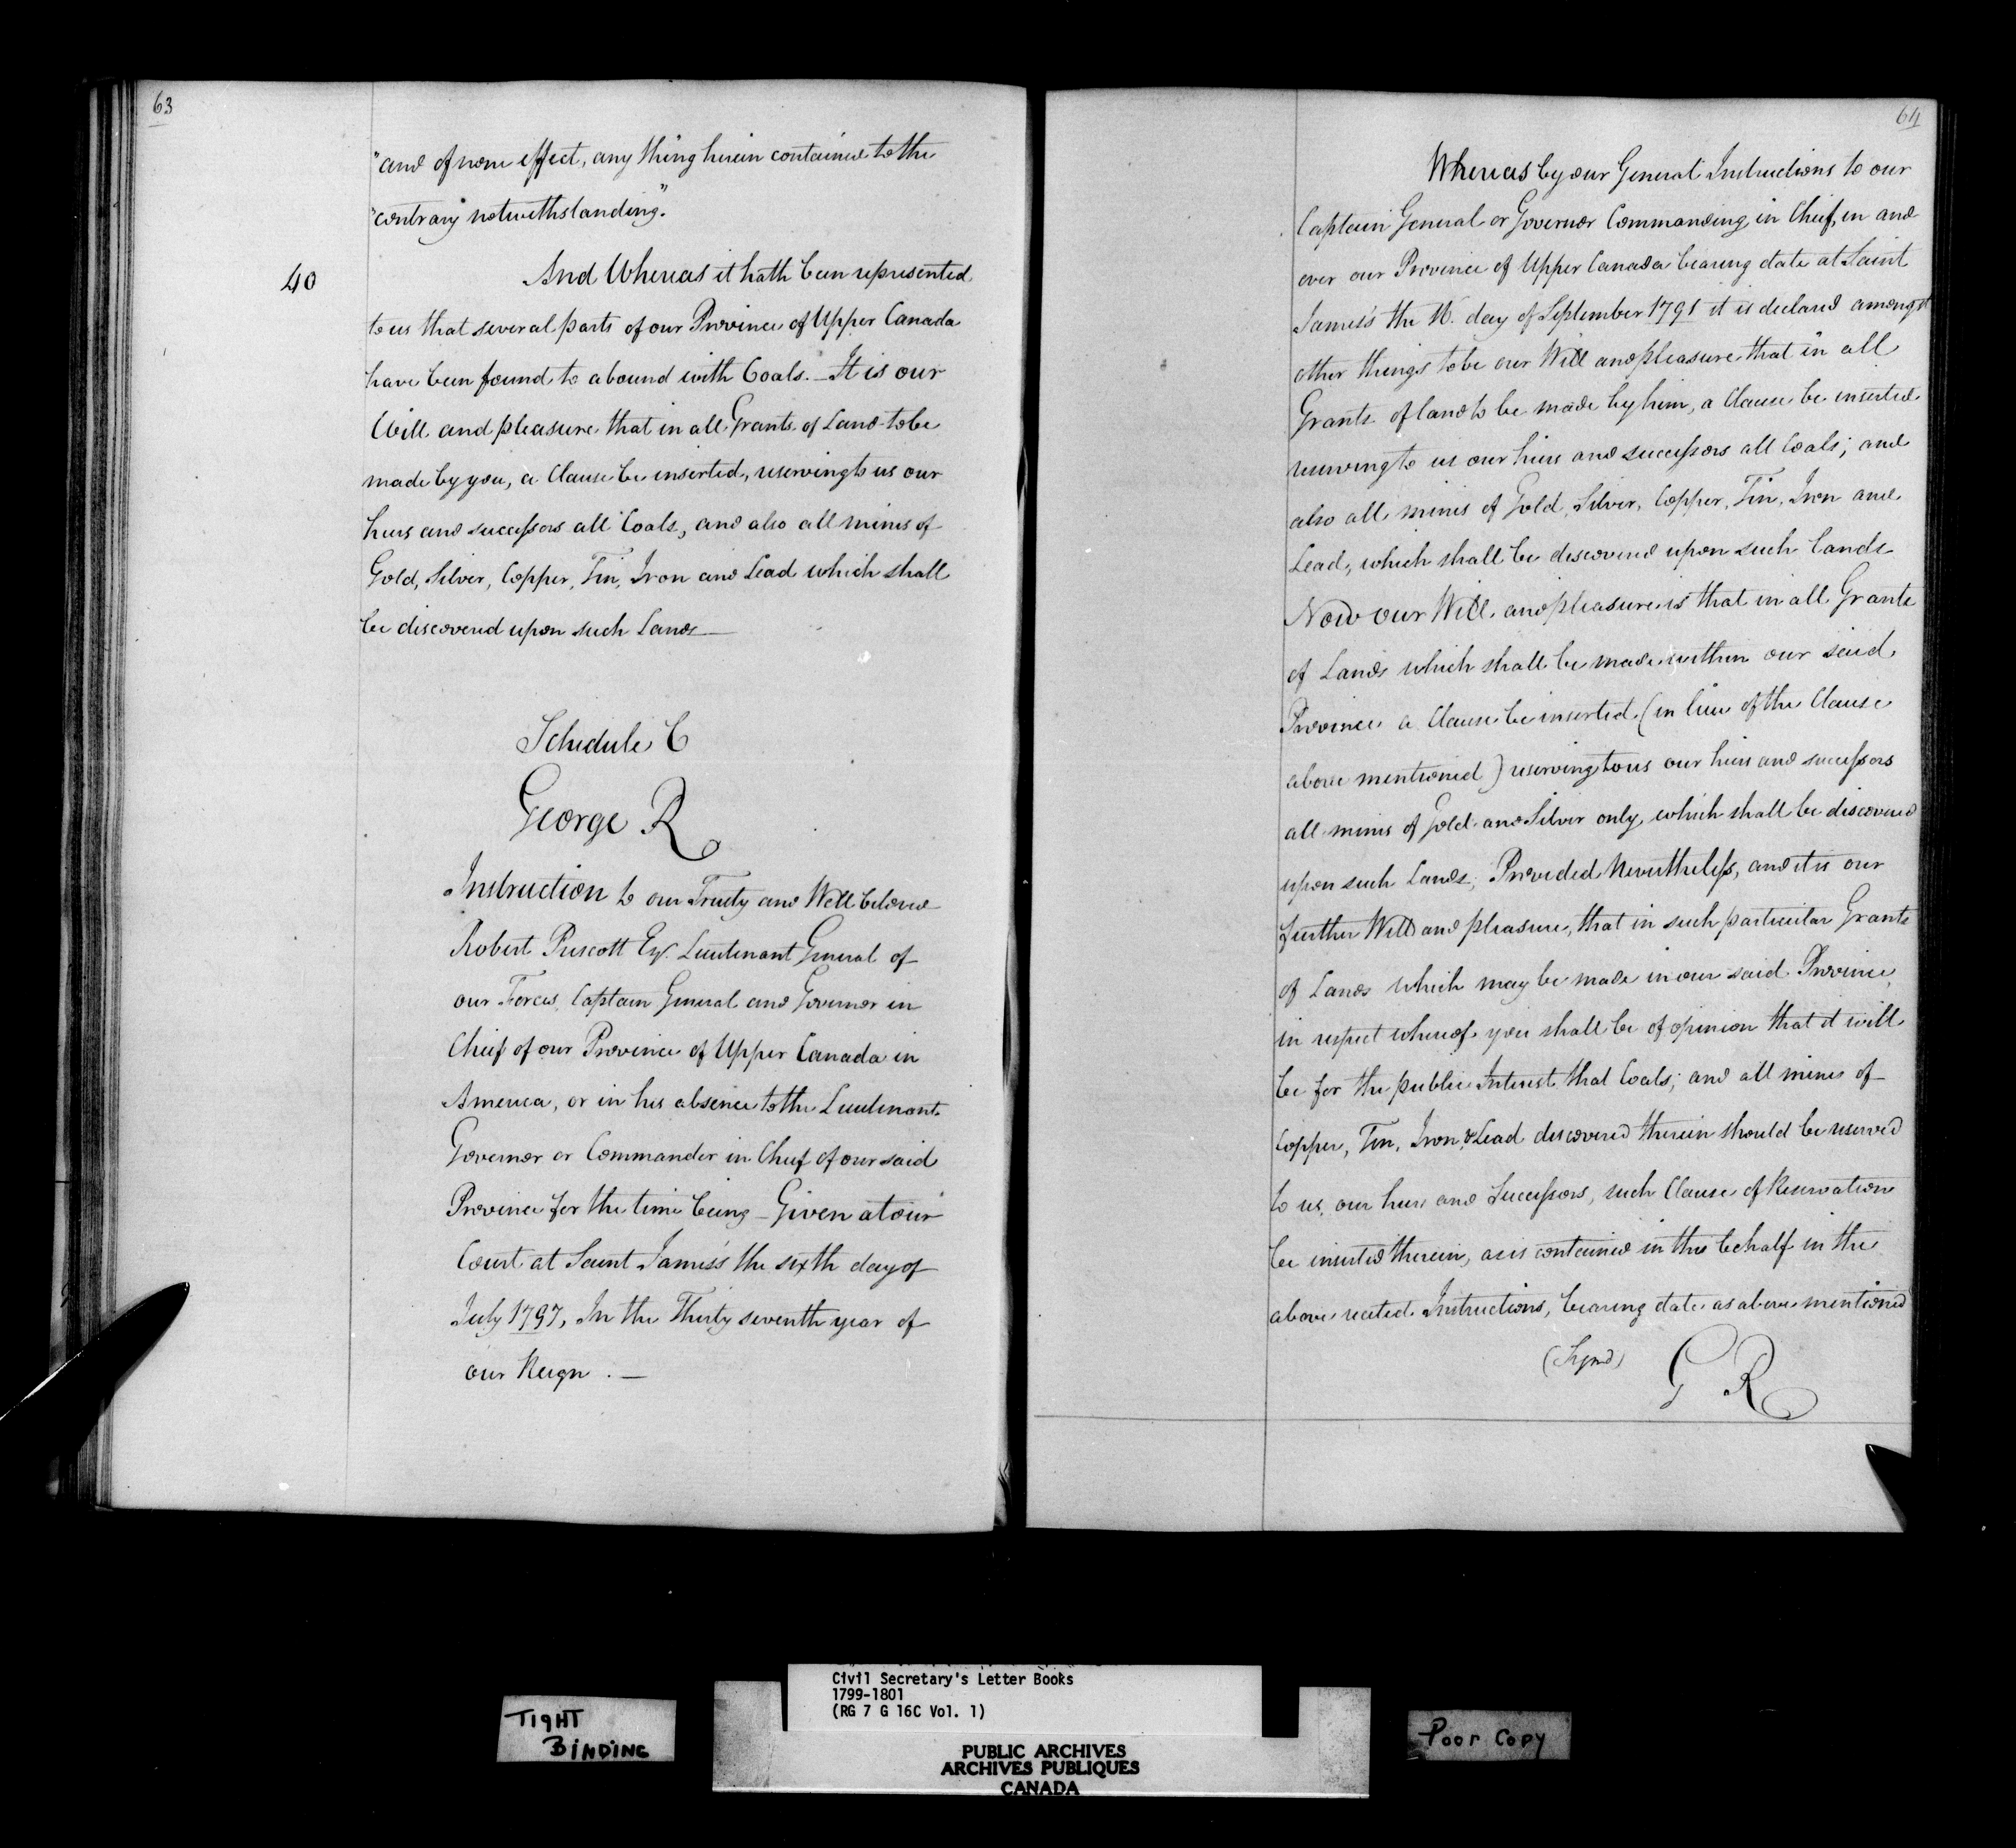 63
"and of none effect, any thing herein contained to the
"contrary notwithstanding."
40
And Whereas it hath been represented
to us that several parts of our Province of Upper Canada
have been found to abound with Coals. – It is our
Will and pleasure that in all Grants of Land to be
made by you, a Clause be inserted, reserving to us our
heirs and successors all Coals, and also all mines of
Gold, Silver, Copper, Tin, Iron and Lead which shall
be discovered upon such Lands —
Schedule C
George R
Instruction to our Trusty and Well beloved
Robert Prescott Esqr. Lieutenant General of
our Forces, Captain General and Governor in
Chief of our Province of Upper Canada in
America, or in his absence to the Lieutenant
Governor or Commander in Chief of our said
Province for the time being – Given at our
Court at Saint James's the sixth day of
July 1797, In the Thirty seventh year of
our Reign . —
64
Whereas by our General Instructions to our
Captain General or Governor Commanding in Chief, in and
over our Province of Upper Canada bearing date at Saint
James's the 16. day of September 1791 it is declared amongst
other things to be our Will and pleasure that in all
Grants of land to be made by him, a Clause be inserted
reserving to us our heirs and successors all Coals; and
also all mines of Gold, Silver, Copper, Tin, Iron and
Lead, which shall be discovered upon such Lands
Now our Will and pleasure is that in all Grants
of Lands which shall be made within our said
Province a Clause be inserted (in lieu of the Clause
above mentioned) reserving to us our heirs and successors
all mines of Gold and Silver only which shall be discovered
upon such Lands; Provided Nevertheless, and it is our
further Will and pleasure, that in such particular Grants
of Lands which may be made in our said Province,
in respect whereof you shall be of opinion that it will
be for the public Interest that Coals; and all mines of
Copper, Tin, Iron & Lead discovered therein should be reserved
to us, our heirs and Successors, such Clause of Reservation
be inserted therein, as is contained in this behalf in the
above recited Instructions, bearing date as above mentioned
(Signed) G R
Civil Secretary's Letter Books
1799-1801
(RG 7 G 16C Vol. 1)
TIGHT
BINDING
Poor Copy
PUBLIC ARCHIVES
ARCHIVES PUBLIQUES
CANADA